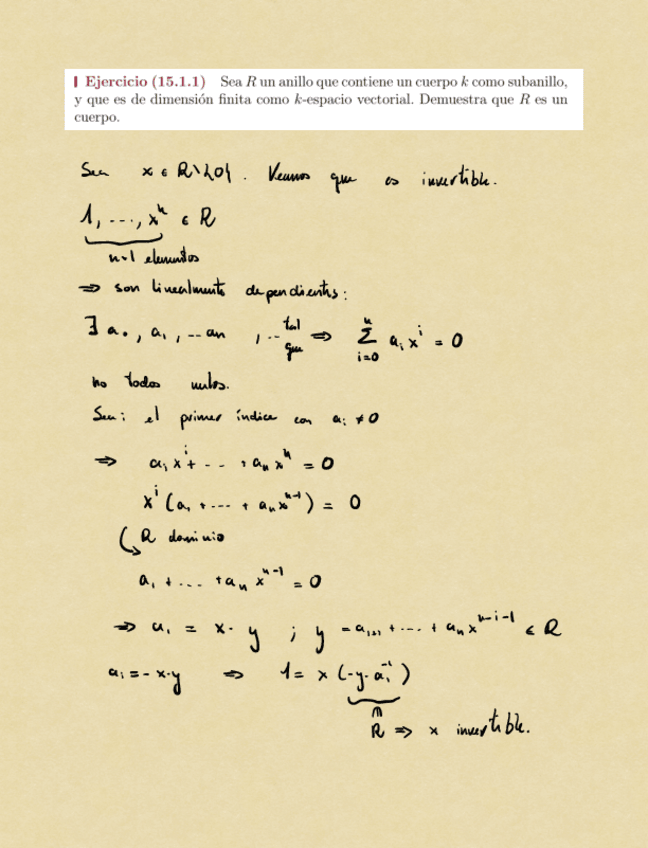 Ejercicio (15.1.1) Sea R un anillo que contiene un cuerpo k como subanillo,
y que es de dimensión finita como k-espacio vectorial. Demuestra que R es un
cuerpo.
Sea x ∈ R\{0}. Veamos que es invertible.
1, ..., xⁿ ∈ R
n+1 elementos
⇒ son linealmente dependientes:
∃ a₀, a₁, ... an , .. tal que ⇒ ∑_{i=0}^{n} aᵢ xⁱ = 0
no todos nulos.
Sea i el primer índice con aᵢ ≠ 0
⇒ aᵢ xⁱ + ... + aₙ xⁿ = 0
xⁱ (aᵢ + ... + aₙ xⁿ⁻ⁱ) = 0
R dominio
aᵢ + ... + aₙ xⁿ⁻ⁱ = 0
⇒ aᵢ = x · y ; y = aᵢ₊₁ + ... + aₙ xⁿ⁻ⁱ⁻¹ ∈ R
aᵢ = - x·y ⇒ 1 = x (-y · aᵢ⁻¹)
∈
R ⇒ x invertible.